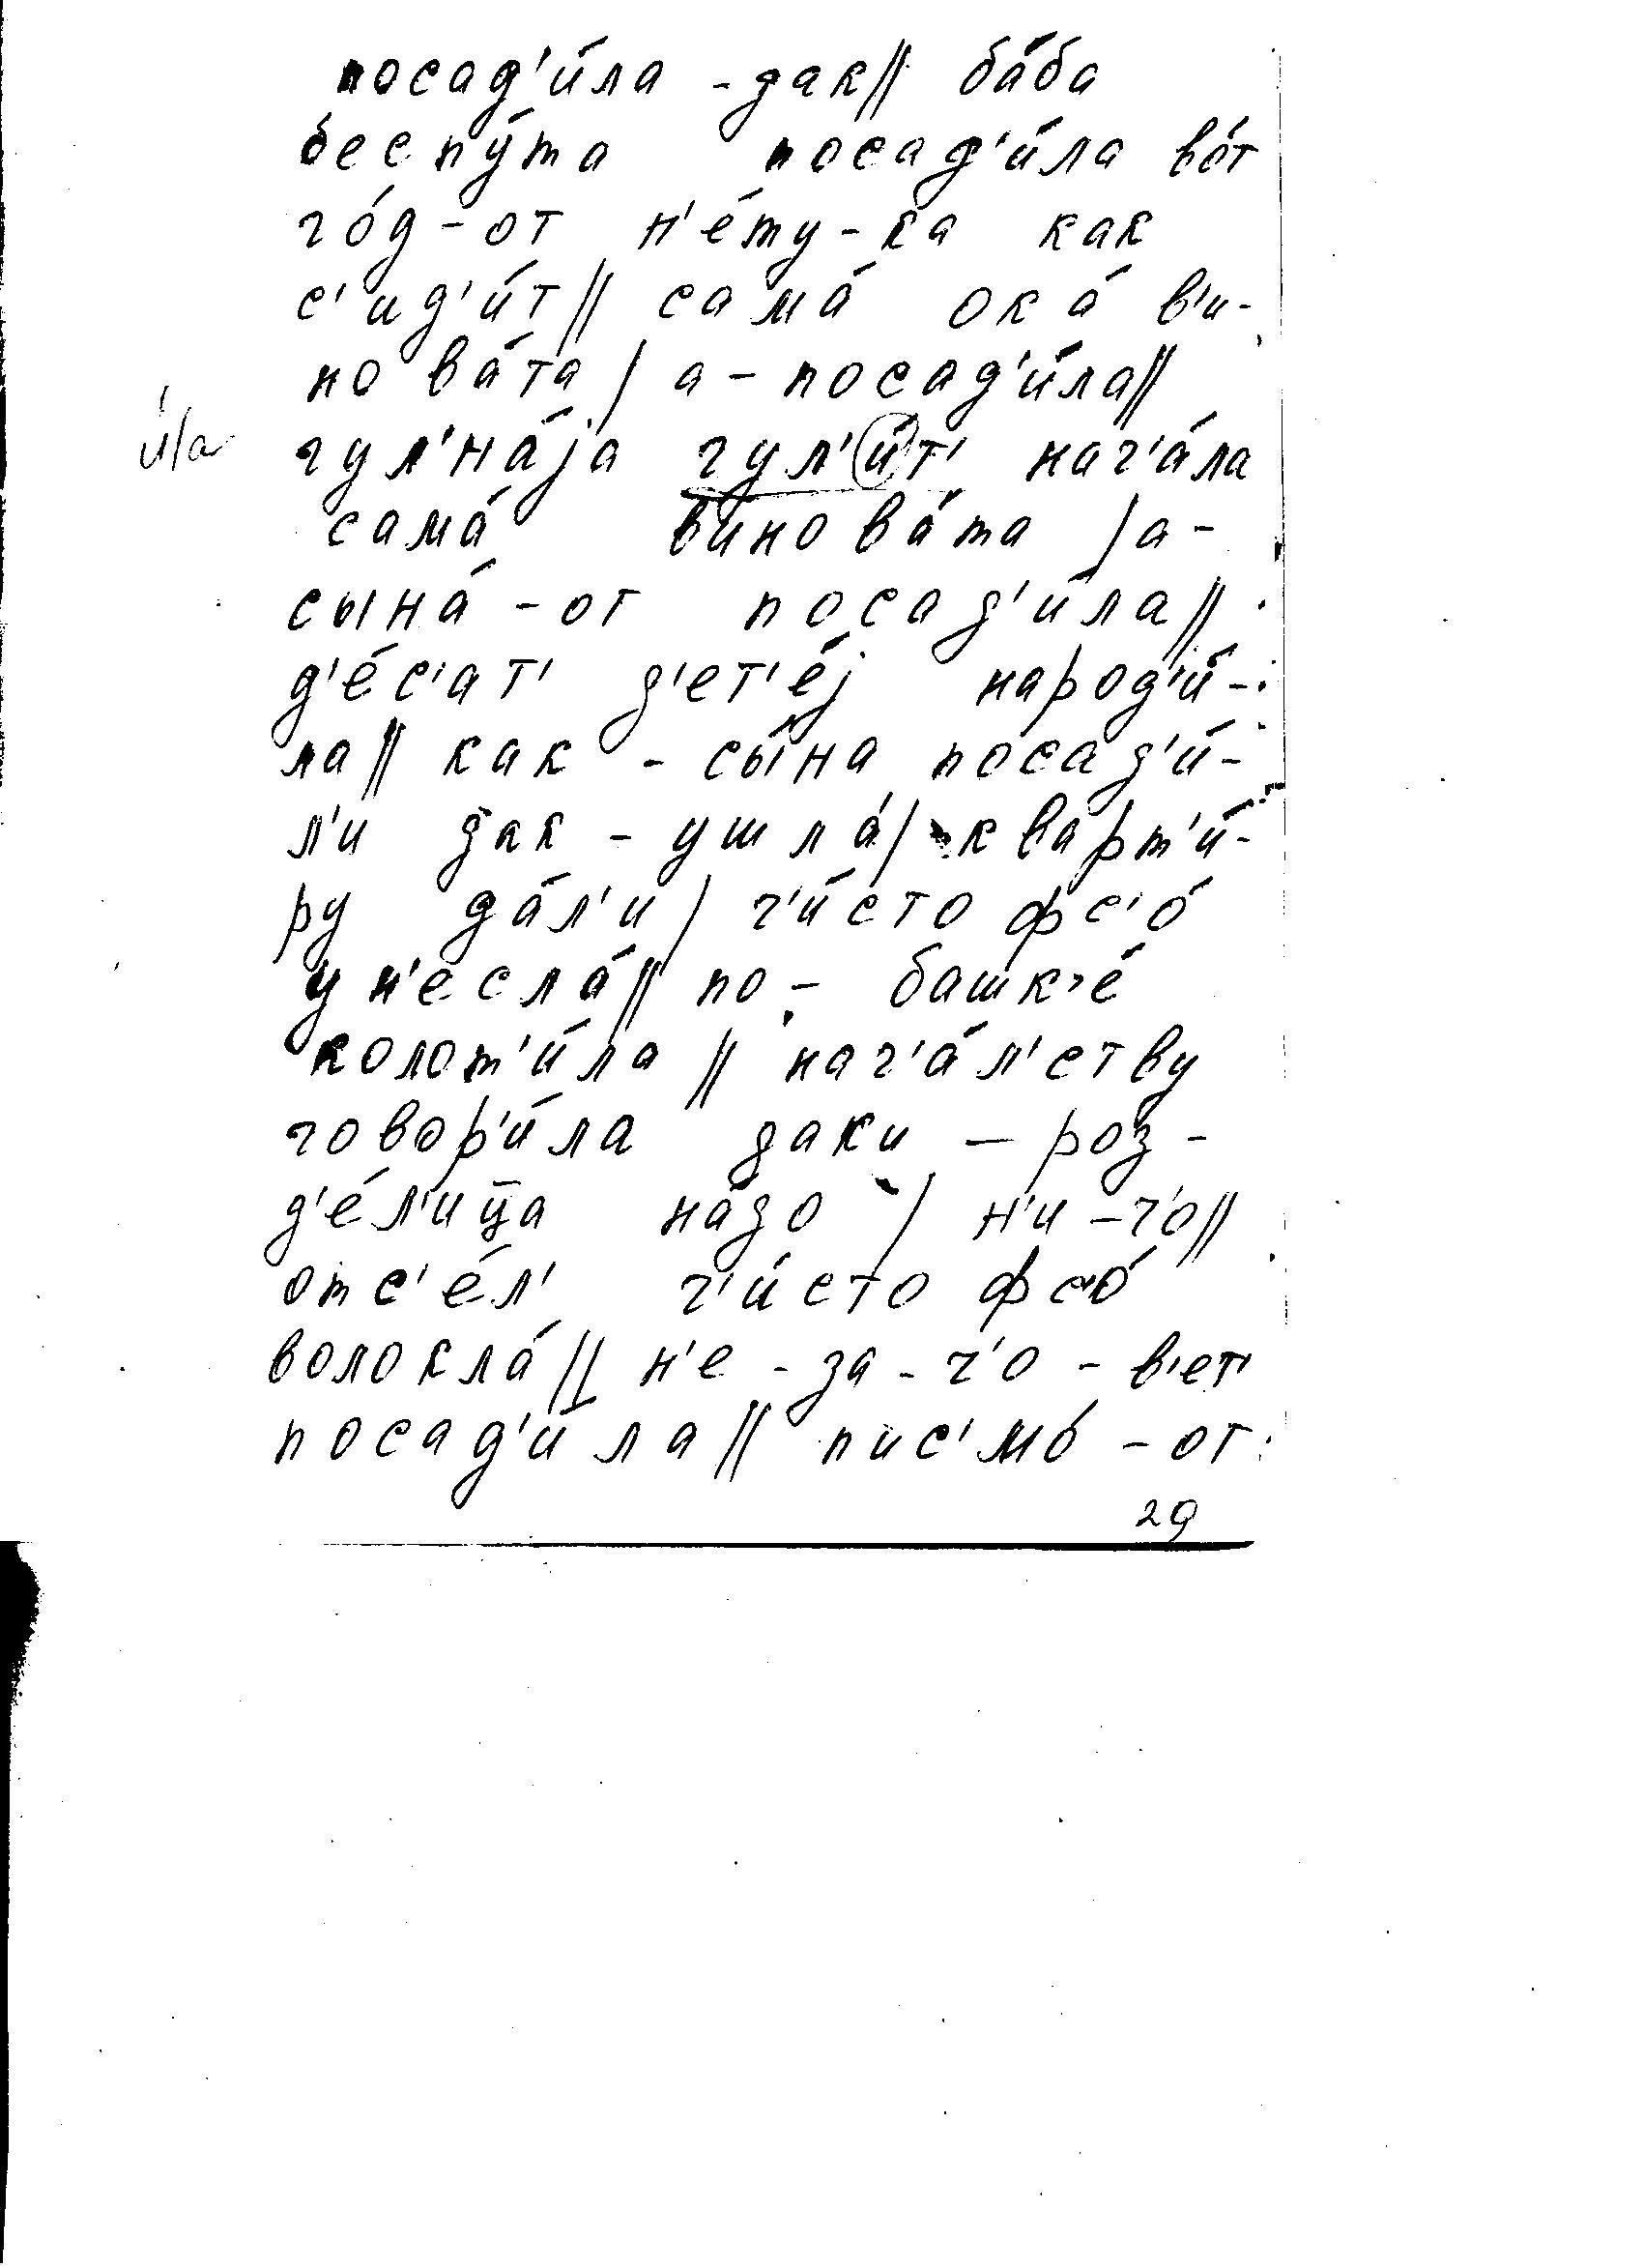 посад'и́ла -дак// ба́ба
беспу́та посад'и́ла во́т
го́д-от н'е́ту-ка как
с'ид'и́т// сама́ ока́ в'и-
нова́та / а-посад'и́ла//
и́/а гул'на́jа гул'и́т' нач'а́ла
сама́ винова́та /а-
сына́-от посад'и́ла//
д'е́с'ат' д'ет'е́j народ'и́-
ла// как - сы́на посад'и́-
л'и дак - ушла́/ кварт'и́-
ру да́л'и / ч'и́сто фс'о́
ун'есла́// по- башк'е́
колот'и́ла // нач'а́л'ству
говор'и́ла даки - роз-
д'е́л'иц̄а на́до / н'и-ч'о//
отс'е́л' ч'и́сто фсо́
волокла́// н'е-за-ч'о-в'ет'
посад'и́ла// пис'мо́-от
29